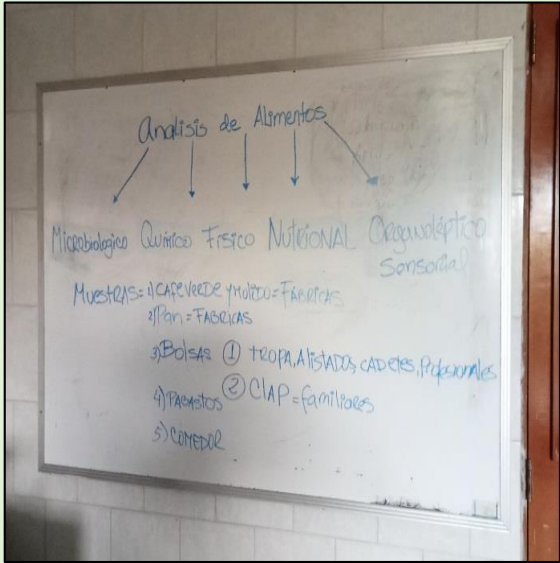 Analisis de Alimentos
Microbiologico Químico Físico NUTRIONAL Organoléptico
Sensorial
MUESTRAS= 1) CAFE VERDE Y MOLIDO = FABRICAS
2) Pan = FABRICAS
3) Bolsas ① TROPA, Alistados, CADETES, Profesionales
② ClAP = familiares
4) PAGASTOS
5) COMEDOR